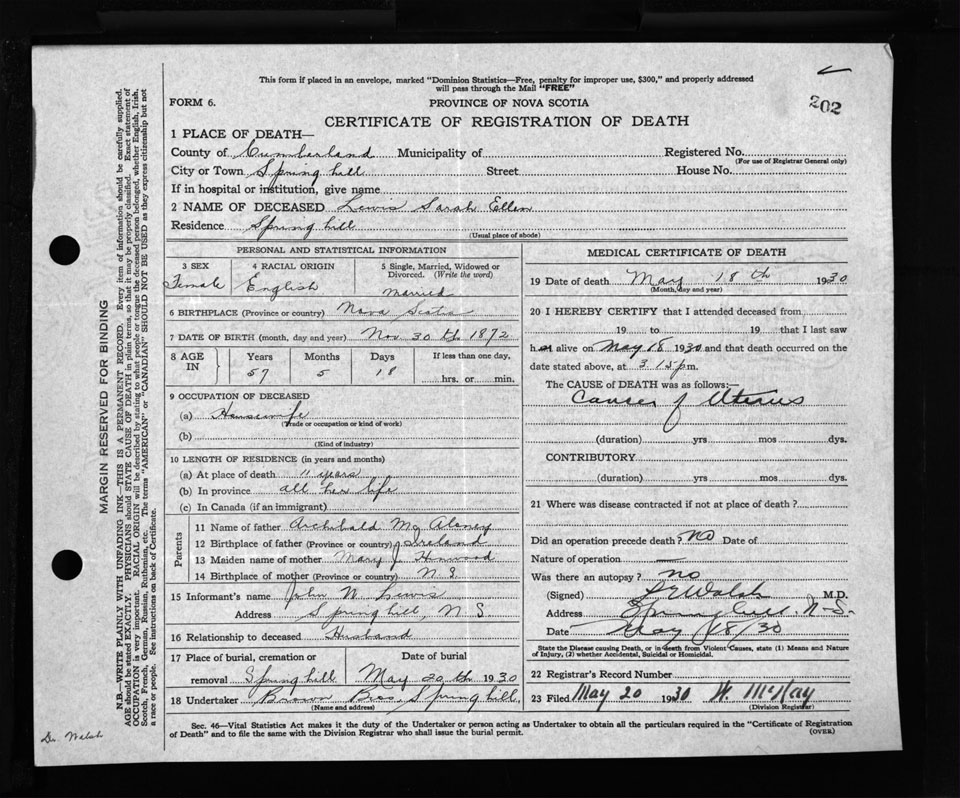 This form if placed in an envelope, marked "Dominion Statistics—Free, penalty for improper use, $300," and properly addressed
will pass through the Mail "FREE"
202
FORM 6.
PROVINCE OF NOVA SCOTIA
CERTIFICATE OF REGISTRATION OF DEATH
1 PLACE OF DEATH—
County of Cumberland Municipality of Registered No.
(For use of Registrar General only)
City or Town Spring hill Street House No.
If in hospital or institution, give name
2 NAME OF DECEASED Lewis Sarah Ellen
Residence Spring hill
(Usual place of abode)
PERSONAL AND STATISTICAL INFORMATION
3 SEX 4 RACIAL ORIGIN 5 Single, Married, Widowed or
Divorced. (Write the word)
Female English Married
6 BIRTHPLACE (Province or country) Nova Scotia
7 DATE OF BIRTH (month, day and year) Nov 30th 1872
8 AGE IN Years Months Days If less than one day,
57 5 18 hrs. or min.
9 OCCUPATION OF DECEASED
(a) Housewife
(Trade or occupation or kind of work)
(b)
(Kind of industry)
10 LENGTH OF RESIDENCE (in years and months)
(a) At place of death 11 years
(b) In province all her life
(c) In Canada (if an immigrant)
Parents
11 Name of father Archibald Mc Aloney
12 Birthplace of father (Province or country) Ireland
13 Maiden name of mother Mary J
14 Birthplace of mother (Province or country) N. S.
15 Informant's name John W. Lewis
Address Spring hill, N S
16 Relationship to deceased Husband
17 Place of burial, cremation or Date of burial
removal Spring hill May 20th 1930
18 Undertaker Brown Bros, Spring hill
(Name and address)
MEDICAL CERTIFICATE OF DEATH
19 Date of death May 18th 1930
(Month, day and year)
20 I HEREBY CERTIFY that I attended deceased from
19 to 19 that I last saw
her alive on May 18 1930 and that death occurred on the
date stated above, at 3 15 p m.
The CAUSE of DEATH was as follows:—
Cancer of Uterus
(duration) yrs mos dys.
CONTRIBUTORY
(duration) yrs mos dys.
21 Where was disease contracted if not at place of death?
Did an operation precede death? no Date of
Nature of operation —
Was there an autopsy? no
(Signed) Walsh M.D.
Address Springhill. N-S.
Date May 18/30
State the Disease causing Death, or in death from Violent Causes, state (1) Means and Nature
of Injury, (2) whether Accidental, Suicidal or Homicidal.
22 Registrar's Record Number
23 Filed May 20 1930 W. McKay
(Division Registrar)
Sec. 46—Vital Statistics Act makes it the duty of the Undertaker or person acting as Undertaker to obtain all the particulars required in the "Certificate of Registration
of Death" and to file the same with the Division Registrar who shall issue the burial permit.
(OVER)
MARGIN RESERVED FOR BINDING
N.B.—WRITE PLAINLY WITH UNFADING INK—THIS IS A PERMANENT RECORD. Every item of information should be carefully supplied.
AGE should be stated EXACTLY. PHYSICIANS should STATE CAUSE OF DEATH in plain terms, so that it may be properly classified. Exact statement of
OCCUPATION is very important. RACIAL ORIGIN will be described by stating to what people or tongue the deceased person belonged, whether English, Irish,
Scotch, French, German, Russian, Ruthenian, etc. The terms "AMERICAN" or "CANADIAN" SHOULD NOT BE USED as they express citizenship but not
a race or people. See instructions on back of Certificate.
Dr. Walsh